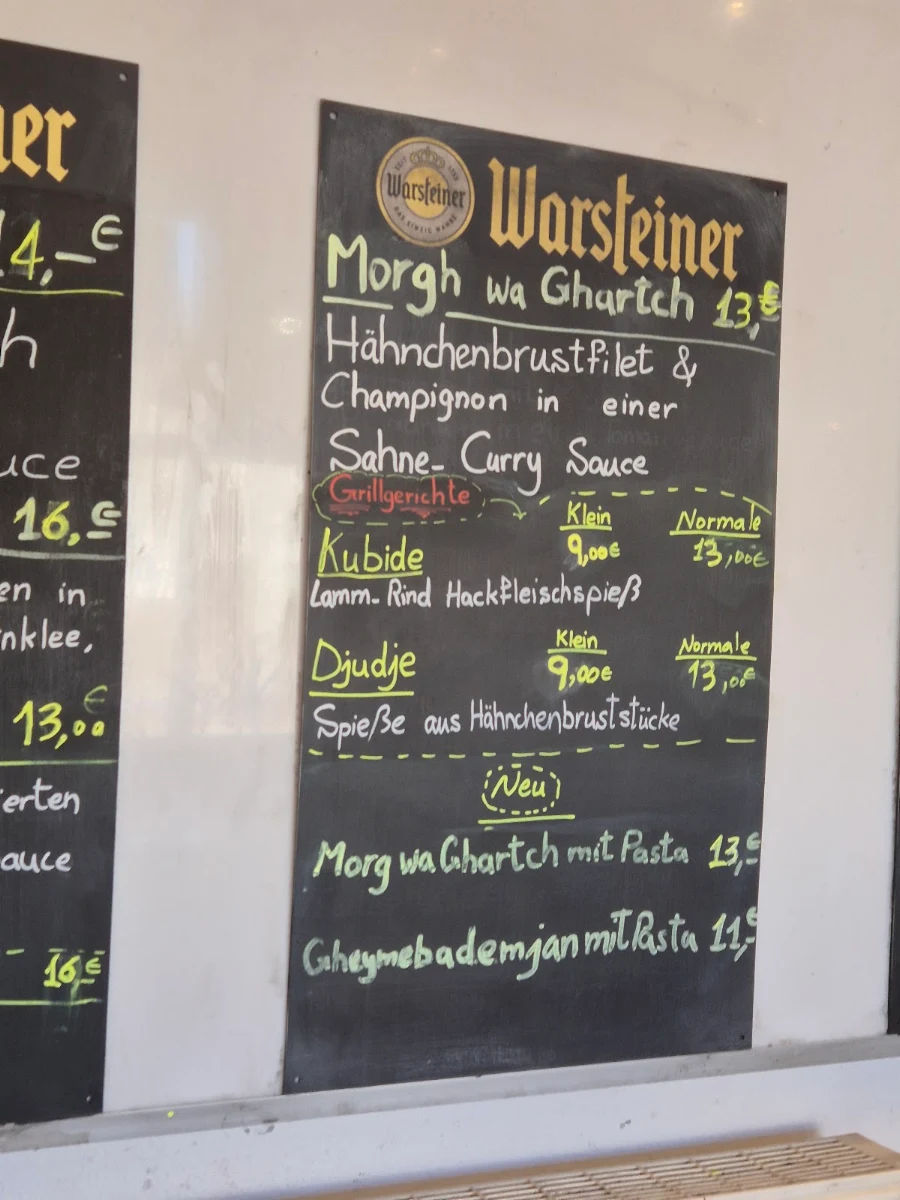 4,-€
h
uce
16,€
en in
nklee,
13,00€
erten
auce
16,€
Warsteiner
Warsteiner
Morgh wa Ghartch 13,€
Hähnchenbrustfilet &
Champignon in einer
Sahne- Curry Sauce
Grillgerichte
Klein Normale
Kubide 9,00€ 13,00€
Lamm- Rind Hackfleischspieß
Klein Normale
Djudje 9,00€ 13,00€
Spieße aus Hähnchenbruststücke
Neu
Morg wa Ghartch mit Pasta 13,€
Gheymebademjan mit Pasta 11,-€